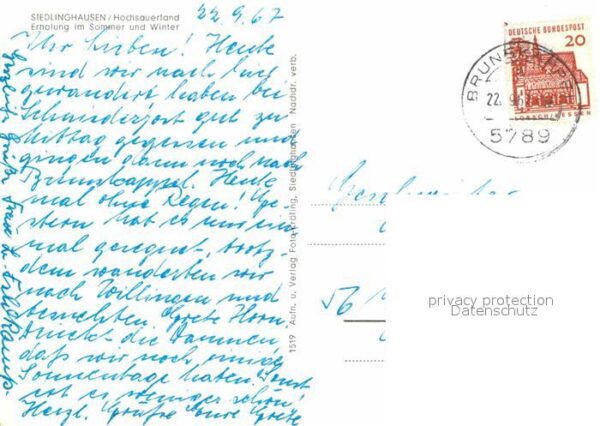 SIEDLINGHAUSEN / Hochsauerland
Erholung im Sommer und Winter
22.9.67
Ihr Lieben! Heute
sind wir nach hier
gewandert haben bei
gut zu
Mittag gegessen und
gingen dann noch nach
Brunskappel. Heute
mal ohne Regen! Ge-
stern hat es uns ein
mal geregnet, trotz-
dem wanderten wir
nach Willingen und
besuchten Grete Horn.
Drückt die Daumen
daß wir noch
Sonnentage haben. Sonst
ist es weniger schön!
Herzl. Grüße Eure Grete
Grüße Frau
1519 Aufn. u. Verlag Foto-Grafling, Siedlinghausen Nachdr. verb.
DEUTSCHE BUNDESPOST
20
LORSCH/HESSEN
BRUNSKAPPEL
22.9.67
5789
Geschwister
56
privacy protection
Datenschutz